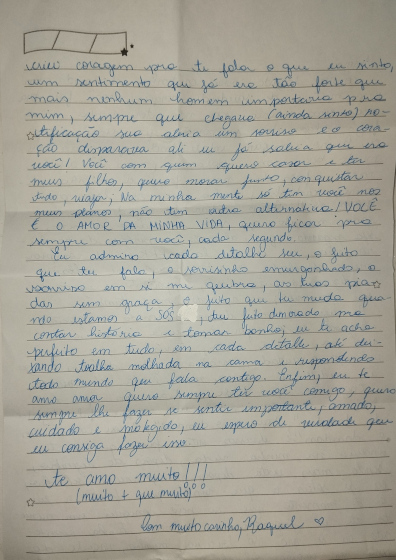 criei coragem pra te fala o que eu sinto,
um sentimento que já era tão forte que
mais nenhum homem importaria pra
mim, sempre que chegava (ainda sinto) no-
tificação sua abria um sorriso e o cora-
ção disparava ali eu já sabia que era
você! Você com quem quero casar e ter
meus filhos, quero morar junto, conquistar
tudo, viajar, Na minha mente só tem você nos
meus planos, não tem outra alternativa! VOCÊ
É O AMOR DA MINHA VIDA, quero ficar pra
sempre com você, cada segundo.
Eu admiro cada detalhe seu, o jeito
que tu fala, o sorrisinho envergonhado, o
sorriso em si me quebra, as tuas pia-
das sem graça, o jeito que tu muda qua-
ndo estamos a SÓS, teu jeito demorado pra
contar história e tomar banho, eu te acho
perfeito em tudo, em cada detalhe, até dei-
xando toalha molhada na cama e respondendo
todo mundo que fala contigo. Enfim, eu te
amo amor quero sempre ter você comigo, quero
sempre lhe fazer se sentir importante, amado,
cuidado e protegido, eu espero de verdade que
eu consiga fazer isso
Te amo muito!!!
(muito + que muito)
Com muito carinho, Raquel